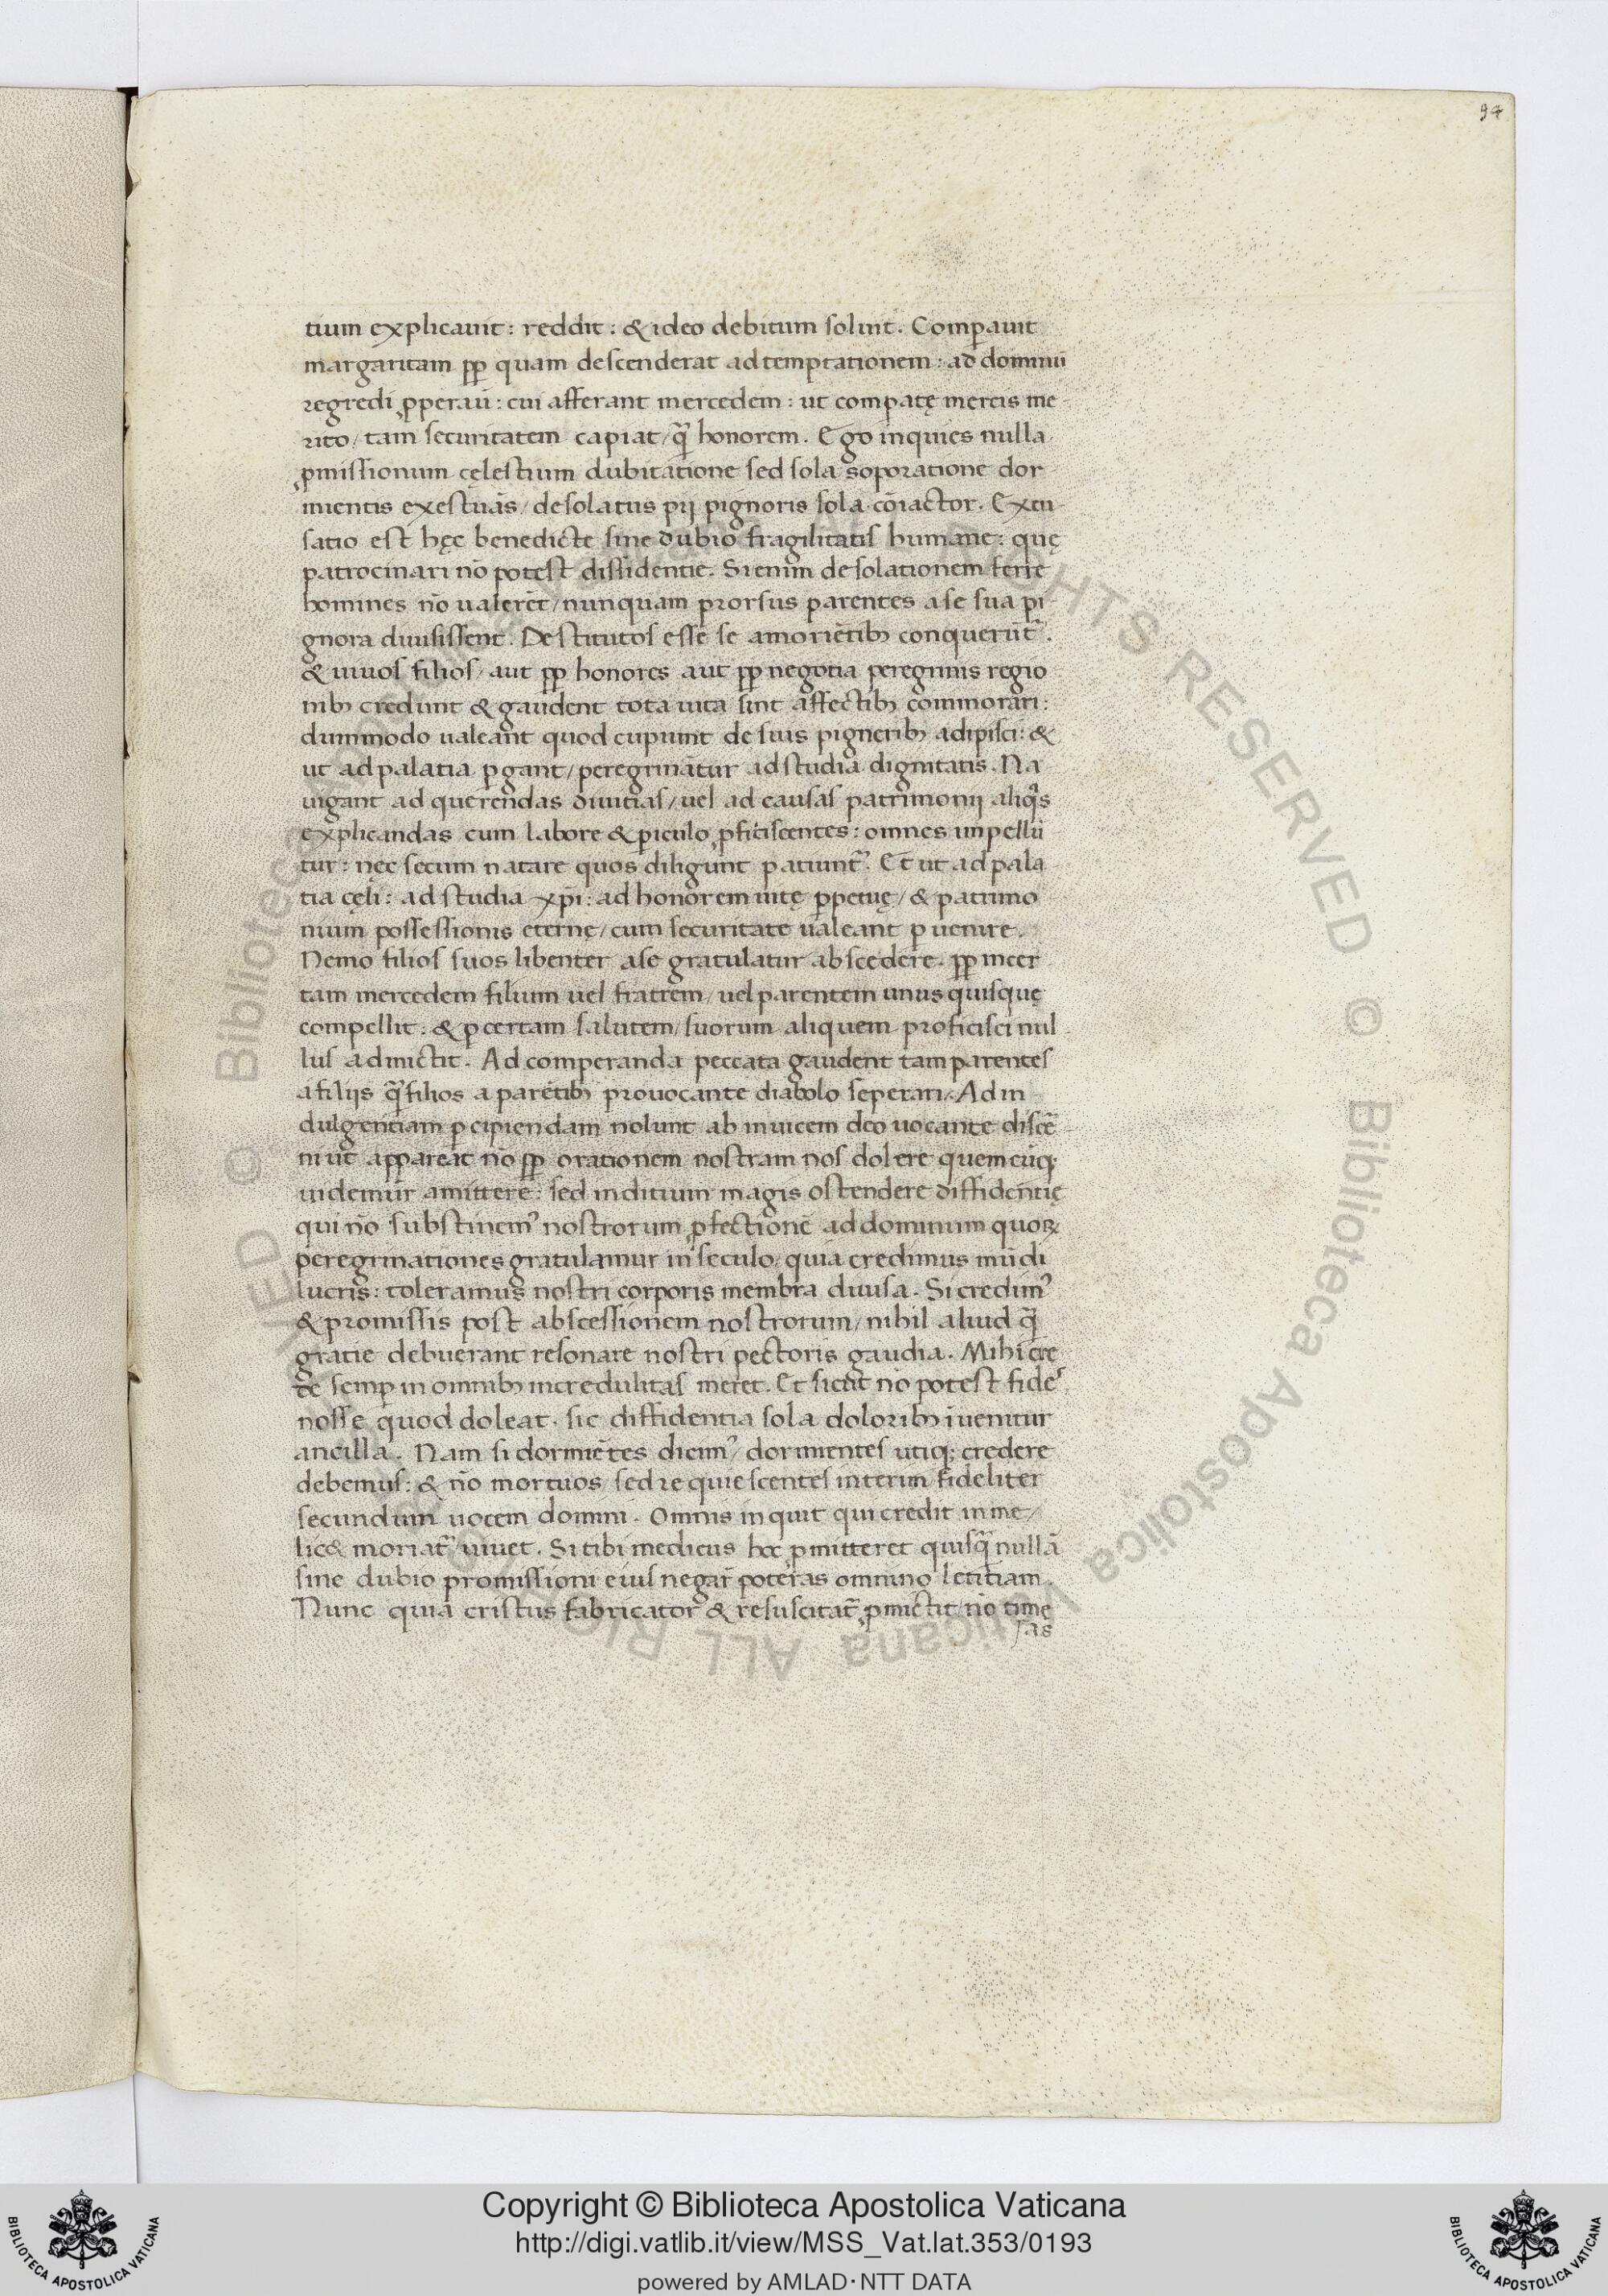 94
tium explicauit: reddit: & ideo debitum soluit. Comꝑauit
margaritam ꝓp quam descenderat ad temptationem: ad dominū
regredi ꝓperauī: cui afferant mercedem: ut compatę mercis me
rito/ tam securitatem capiat/ q̄ honorem. Ego inquies nulla
ꝓmissionum cęlestium dubitatione sed sola soporatione dor
mientis exestuās/ desolatus pij pignoris sola cōiactor. Excu
satio est hęc benedicte sine dubio fragilitatis humane: quę
patrocinari nō potest dissidentie. Si enim desolationem ferre
homines nō ualerēt/ nunquam prorsus parentes a se sua pi
gnora diuisissent. Destitutos esse se a moriētibꝫ conquerūt᷑.
& uiuos filios/ aut ꝓp honores aut ꝓp negotia peregrinis regio
nibꝫ credunt & gaudent tota uita sint affectibꝫ commorari:
dummodo ualeant quod cupiunt de suis pigneribꝫ adipisci: &
ut ad palatia ꝑgant/ peregrinātur ad studia dignitatis. Na
uigant ad querendas diuitias/ uel ad causas patrimonij aliqͥs
explicandas cum labore & ꝑiculo ꝓficiscentes: omnes inpellū
tur: nęc secum natare quos diligunt patiunt᷑. Et ut ad pala
tia cęli: ad studia xp̄i: ad honorem uitę ꝑpetuę/ & patrimo
nium possessionis eternę/ cum securitate ualeant ꝑuenire.
Nemo filios suos libenter a se gratulatur abscedere. ꝓp incer
tam mercedem filium uel fratrem/ uel parentem unus quisquę
compellit: & ꝑ certam salutem/ suorum aliquem proficisci nul
lus admictit. Ad comperanda peccata gaudent tam parentes
a filijs q̄ filios a parētibꝫ prouocante diabolo seperari. Ad in
dulgentiam ꝑcipiendam nolunt ab inuicem deo uocante discē
ni ut appareat nō ꝓp orationem nostram nos dolere quemcūqꝫ
uidemur amittere: sed inditium magis ostendere diffidentię
qui nō substinemꝰ nostrorum ꝓfectionē ad dominum quoꝝ
peregrinationes gratulamur in seculo/ quia credimus mūdi
lucris: toleramus nostri corporis membra diuisa. Si credimꝰ
& promissis post abscessionem nostrorum/ nihil aliud q̄
gratie debuerant resonare nostri pectoris gaudia. Mihi cre
de semꝑ in omnibꝫ incredulitas meret. Et sicut nō potest fides
nosse quod doleat. sic diffidentia sola doloribꝫ īuenitur
ancilla. Nam si dormiētes dicimꝰ/ dormientes utiqꝫ credere
debemus: & nō mortuos sed requiescentes interim fideliter
secundum uocem domini. Omnis inquit qui credit in me/
lic& moriat᷑/ uiuet. Si tibi medicus hoc ꝓmitteret quisq̄ nullā
sine dubio promissioni eius negar̄ poteras omnino letitiam.
Nunc quia cristus fabricator & resuscitat᷑ ꝓmictit/ nō time
sas
Copyright © Biblioteca Apostolica Vaticana
http://digi.vatlib.it/view/MSS_Vat.lat.353/0193
powered by AMLAD·NTT DATA